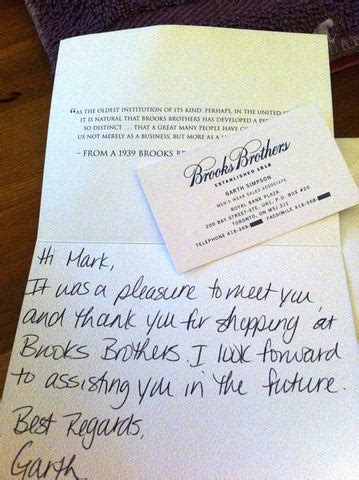 “AS THE OLDEST INSTITUTION OF ITS KIND, PERHAPS, IN THE UNITED
IT IS NATURAL THAT BROOKS BROTHERS HAS DEVELOPED A
SO DISTINCT . . . THAT A GREAT MANY PEOPLE HAVE
US NOT MERELY AS A BUSINESS, BUT MORE AS A
– FROM A 1939 BROOKS
Brooks Brothers
ESTABLISHED 1818
GARTH SIMPSON
MEN'S WEAR SALES ASSOCIATE
ROYAL BANK PLAZA
200 BAY STREET-STE. UR1, P.O. BOX #20
TORONTO, ON M5J 2J1
TELEPHONE 416-368- FACSIMILE 416-368-
Hi Mark,
It was a pleasure to meet you
and thank you for shopping at
Brooks Brothers. I look forward
to assisting you in the future.
Best Regards,
Garth